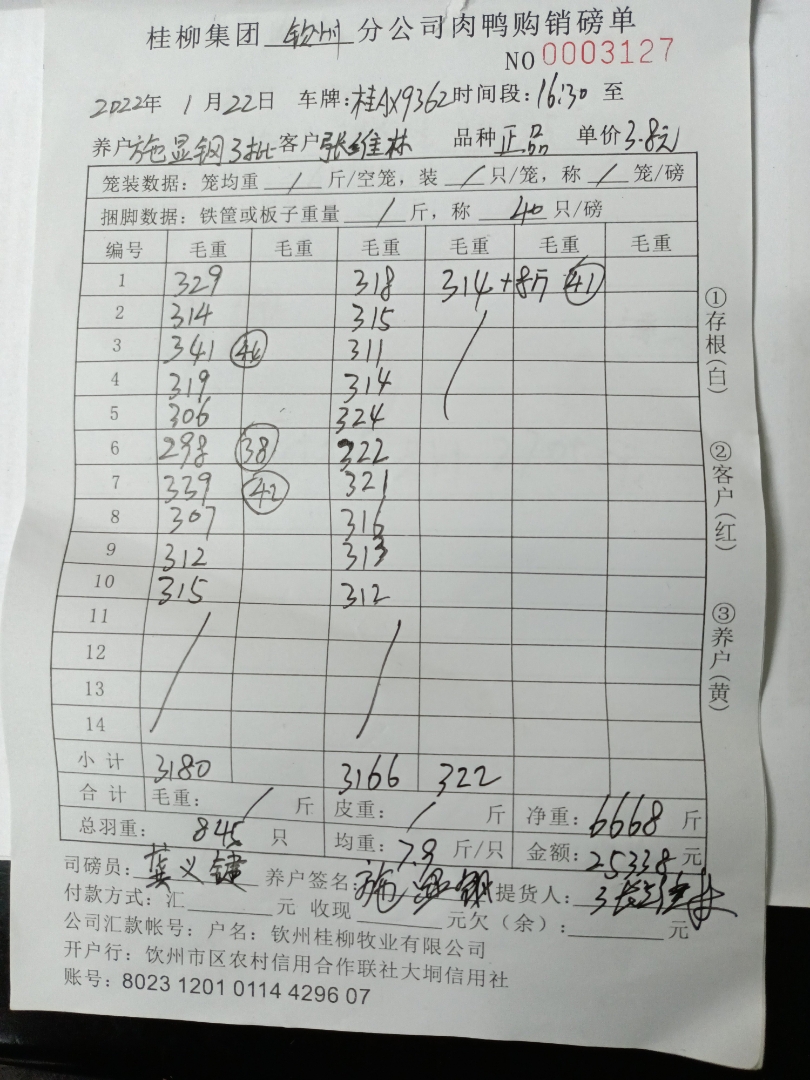 桂柳集团 钦州 分公司肉鸭购销磅单
NO 0003127
2022年 1月22日 车牌:桂AX9362 时间段:16:30 至
养户 施显钢3批 客户 张维林 品种 正品 单价 3.8元
笼装数据: 笼均重 / 斤/空笼, 装 / 只/笼, 称 / 笼/磅
捆脚数据: 铁筐或板子重量 / 斤, 称 40 只/磅
编号 毛重 毛重 毛重 毛重 毛重 毛重
1 329 318 314 +8斤 41
2 314 315 /
3 341 311
4 319 314
5 306 324
6 298 38 322
7 339 42 321
8 307 316
9 312 313
10 315 312
11 / /
12
13
14
小计 3180 3166 322
合计 毛重: / 斤 皮重: / 斤 净重: 6668 斤
总羽重: 845 只 均重: 7.9 斤/只 金额: 25338 元
司磅员: 龚义键 养户签名: 施显钢 提货人: 张维林
付款方式: 汇 元 收现 元欠(余): 元
公司汇款帐号: 户名: 钦州桂柳牧业有限公司
开户行: 钦州市区农村信用合作联社大垌信用社
账号: 8023 1201 0114 4296 07
①存根(白)
②客户(红)
③养户(黄)